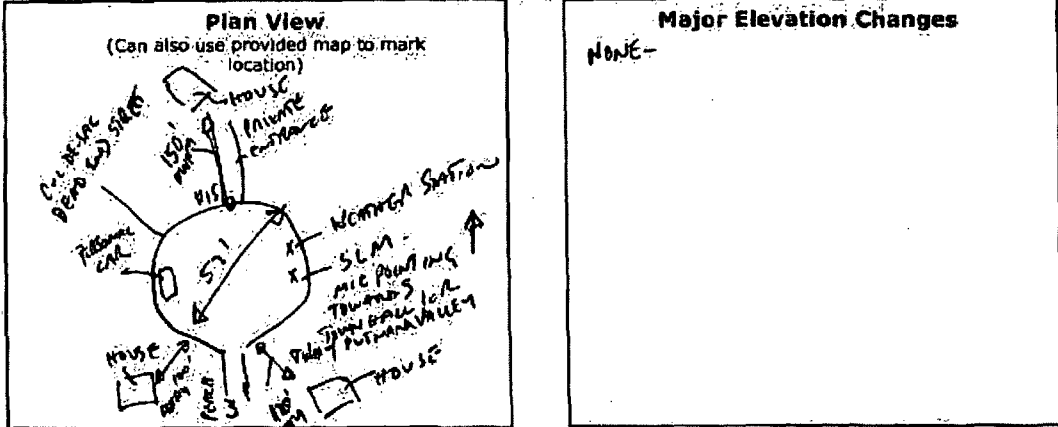 Plan View
(Can also use provided map to mark
location)
HOUSE
PRIVATE
ENTRANCE
150'
CUL-DE-SAC
DEAD END STREET
WEATHER STATION
CAR
57'
SLM -
MIC POINTING
TOWARDS
TOWN HALL
PUTNAM VALLEY
HOUSE
HOUSE
Major Elevation Changes
NONE-